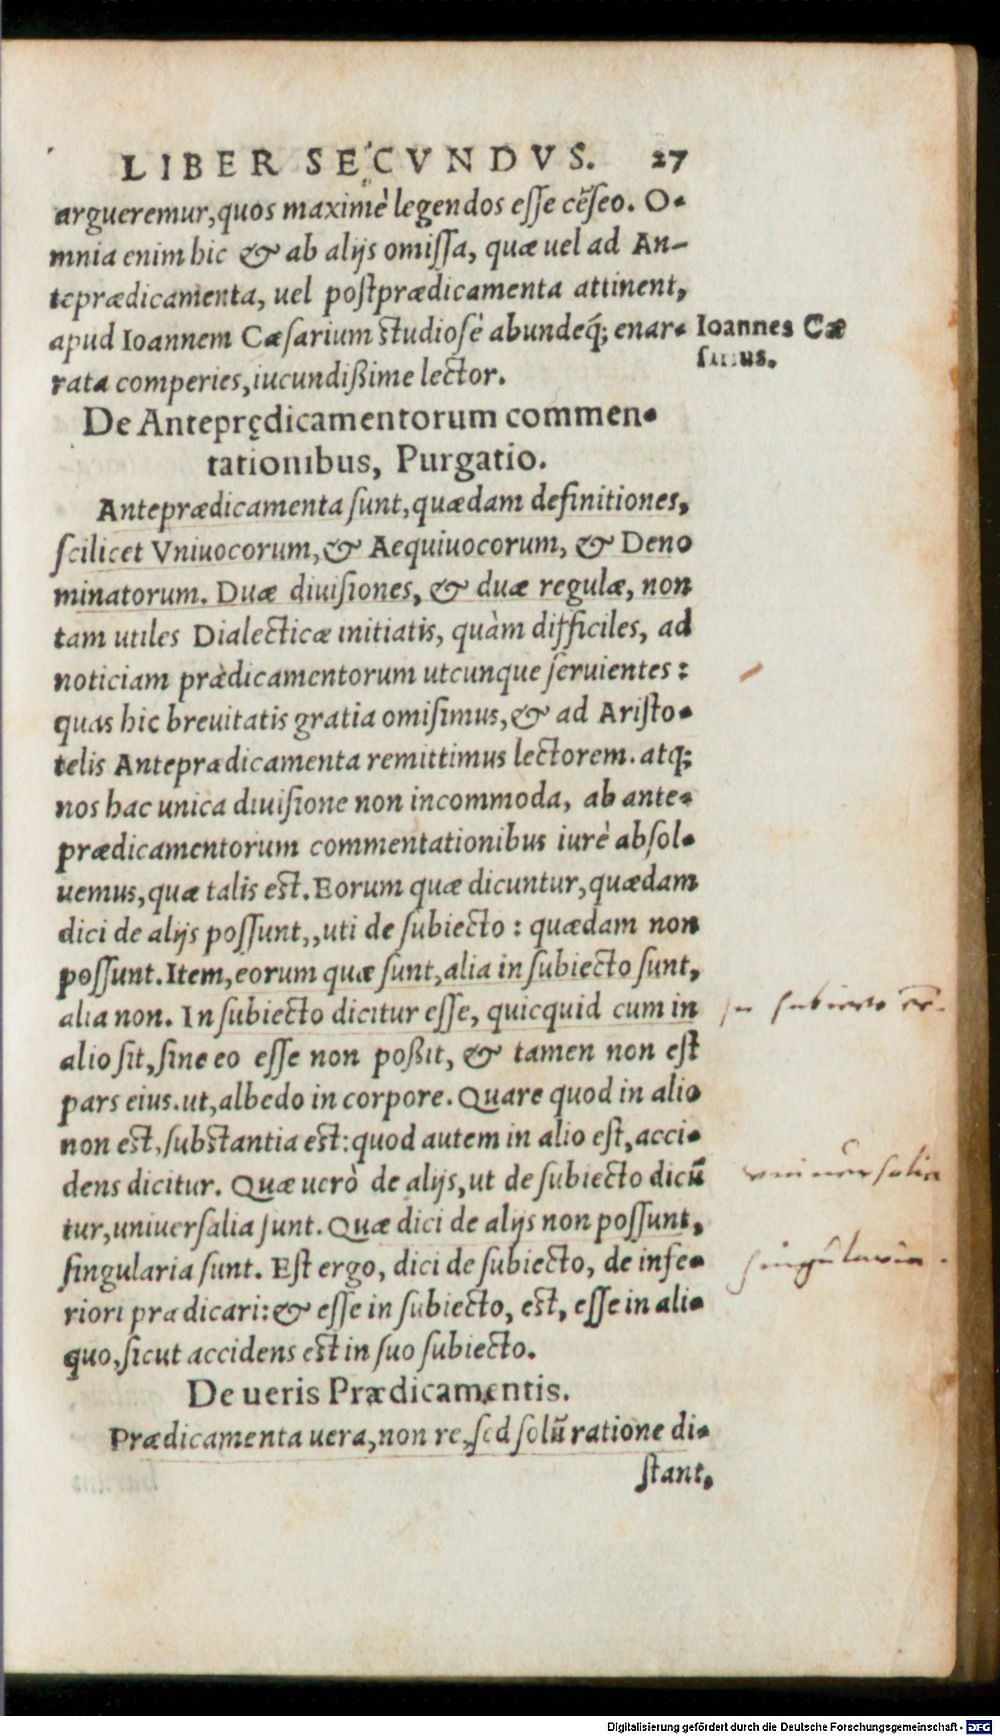 LIBER SECVNDVS. 27
argueremur, quos maximè legendos esse cẽseo. O-
mnia enim hic & ab alijs omissa, quæ uel ad An-
teprædicamenta, uel postprædicamenta attinent,
apud Ioannem Cæsarium studiosè abundeq́; enar-
rata comperies, iucundißime lector.
Ioannes Cæ
sarius.
De Anteprędicamentorum commen-
tationibus, Purgatio.
Anteprædicamenta sunt, quædam definitiones,
scilicet Vniuocorum, & Aequiuocorum, & Deno
minatorum. Duæ diuisiones, & duæ regulæ, non
tam utiles Dialecticæ initiatis, quàm difficiles, ad
noticiam prædicamentorum utcunque seruientes:
quas hic breuitatis gratia omisimus, & ad Aristo-
telis Anteprædicamenta remittimus lectorem. atq;
nos hac unica diuisione non incommoda, ab ante-
prædicamentorum commentationibus iurè absol-
uemus, quæ talis est. Eorum quæ dicuntur, quædam
dici de alijs possunt,, uti de subiecto: quædam non
possunt. Item, eorum quæ sunt, alia in subiecto sunt,
alia non. In subiecto dicitur esse, quicquid cum in
alio sit, sine eo esse non poßit, & tamen non est
pars eius. ut, albedo in corpore. Quare quod in alio
non est, substantia est: quod autem in alio est, acci-
dens dicitur. Quæ uerò de alijs, ut de subiecto dicũ
tur, uniuersalia sunt. Quæ dici de alijs non possunt,
singularia sunt. Est ergo, dici de subiecto, de infe-
riori prædicari: & esse in subiecto, est, esse in ali-
quo, sicut accidens est in suo subiecto.
in subiecto
uniuersalia
singularia.
De ueris Prædicamentis.
Prædicamenta uera, non re, sed solũ ratione di-
stant,
Digitalisierung gefördert durch die Deutsche Forschungsgemeinschaft - DFG